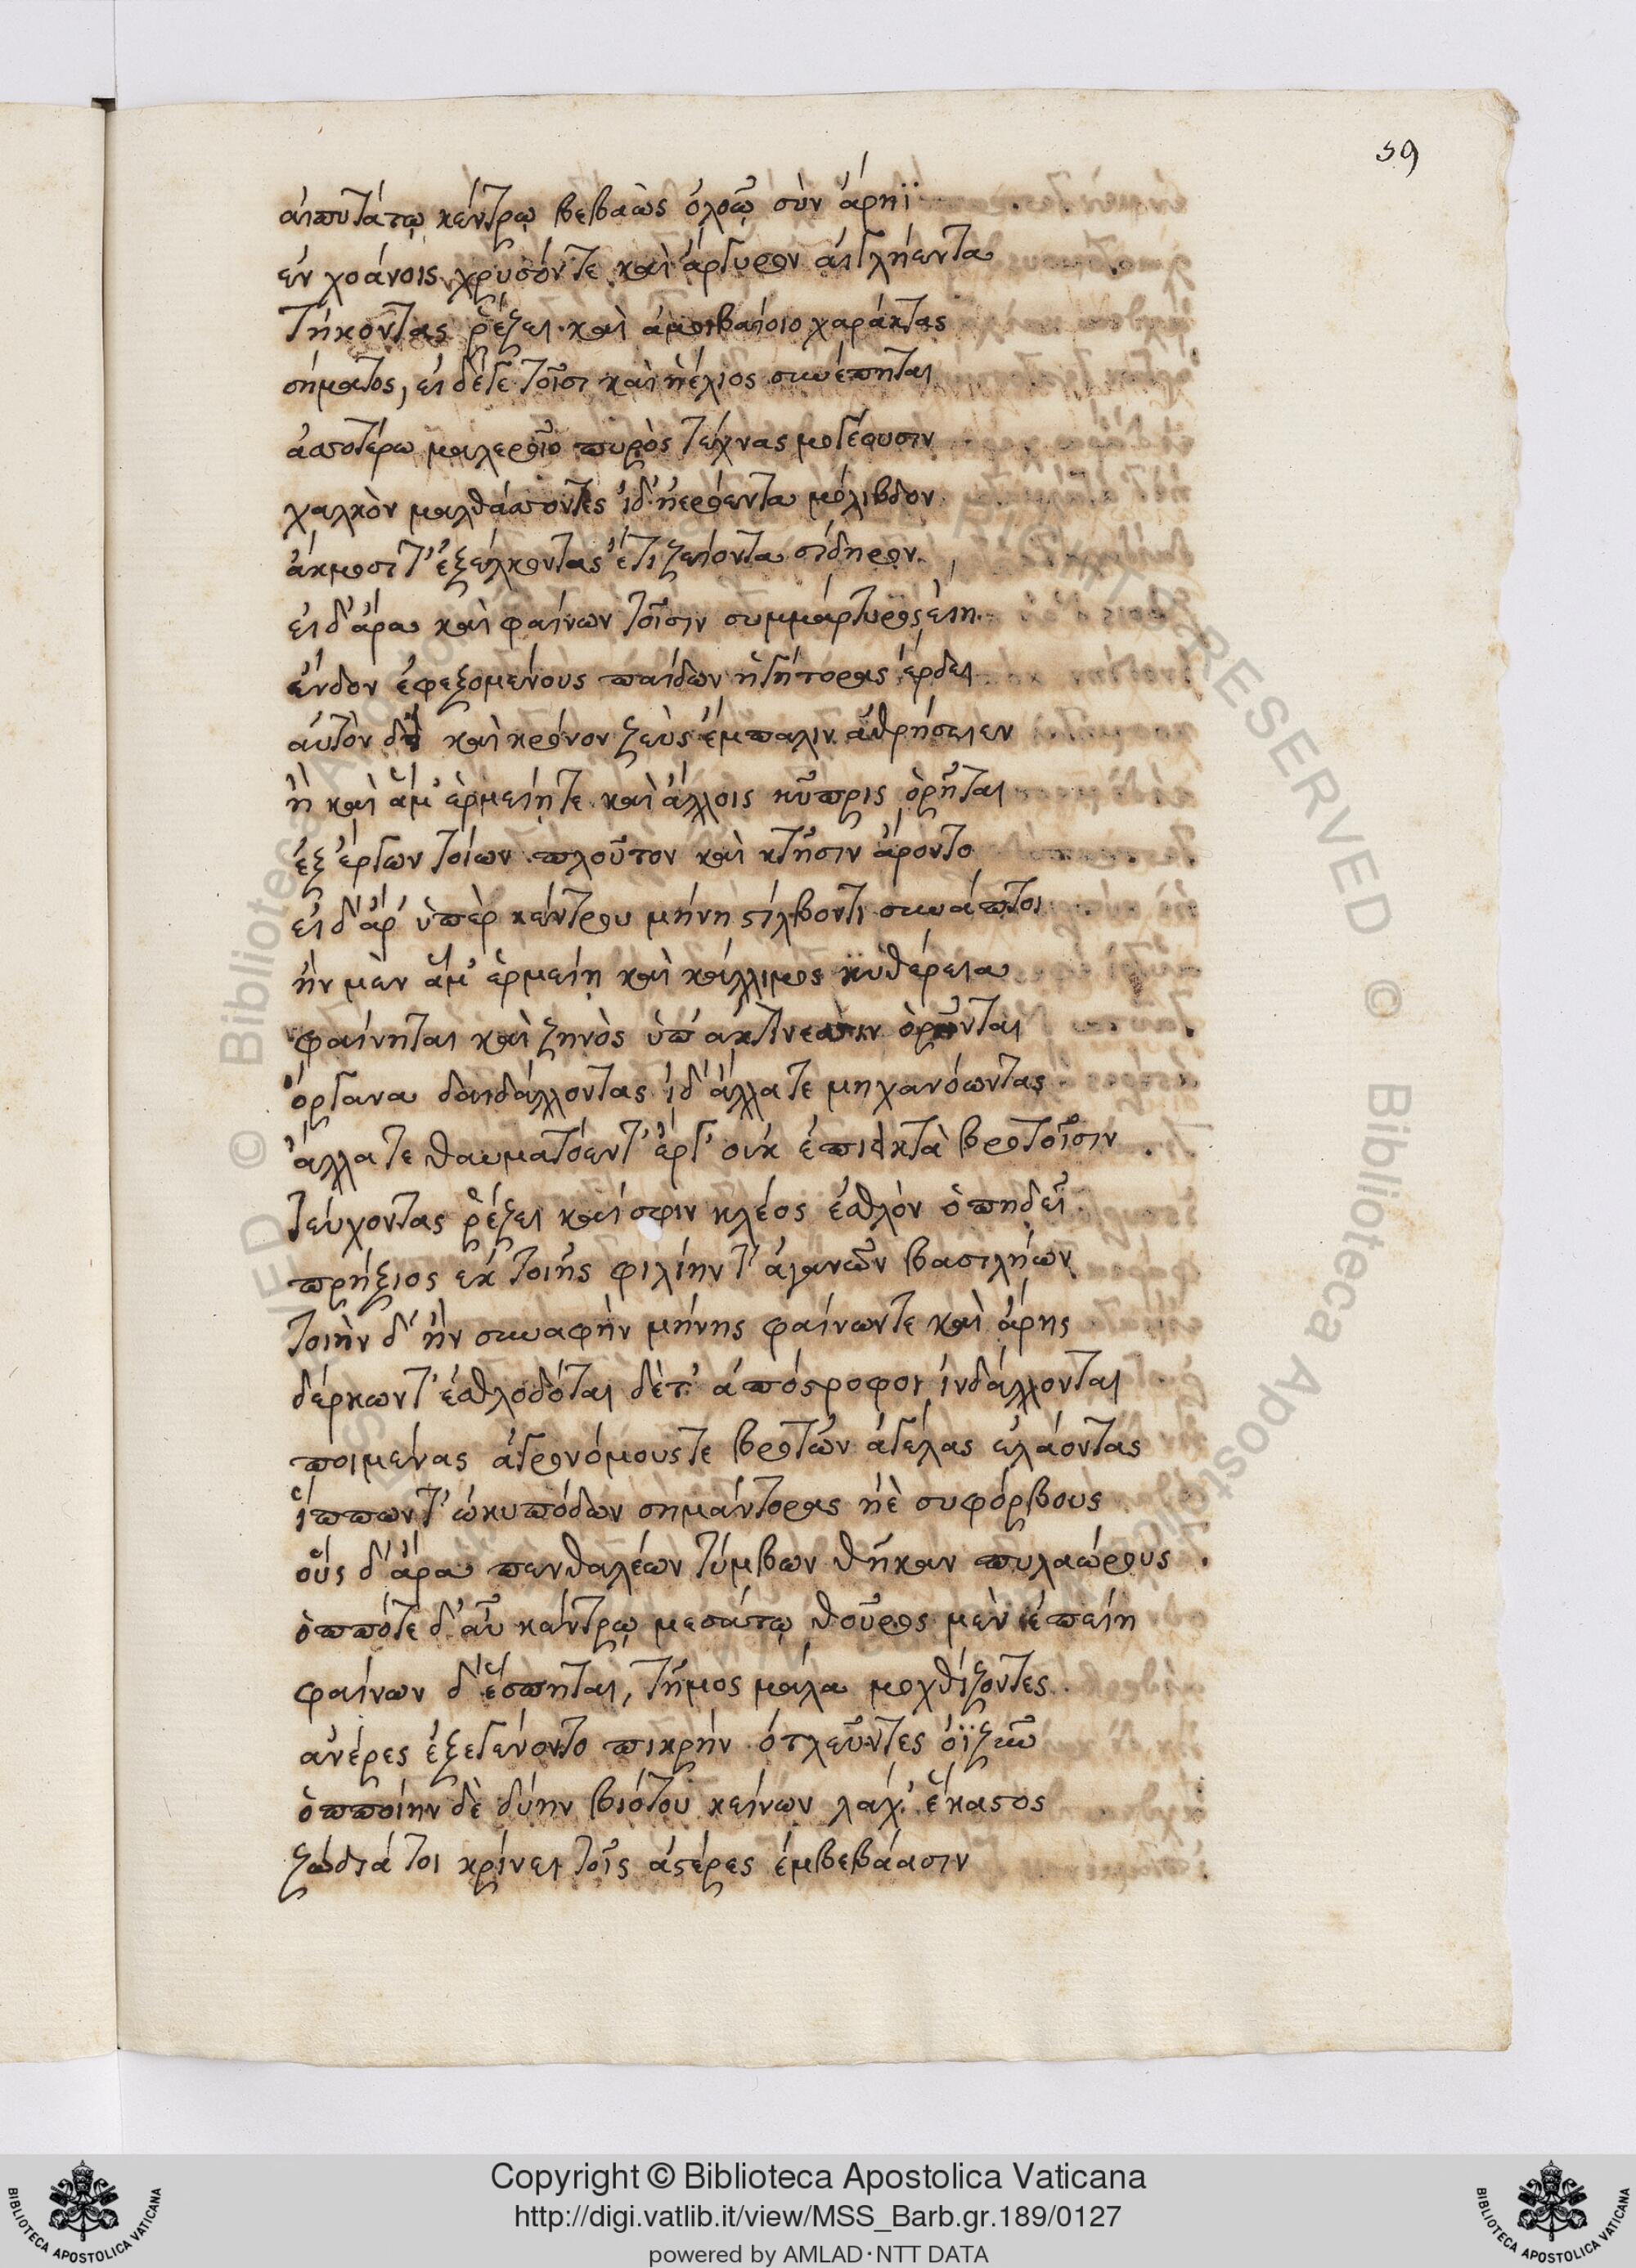 59
αἰπυτάτῳ κέντρῳ βεβαὼς ὀλοῷ σὺν ἄρηϊ
ἐν χοάνοις χρυσόν τε καὶ ἄργυρον αἰγλήεντα
τήκοντας ῥέζει· καὶ ἀμοιβαίοιο χαράκτας
σήματος, εἰ δέ γε τοῖσι καὶ ἠέλιος συνέπηται
ἀσσοτέρω μαλεροῖο πυρὸς τέχνας μογέουσιν
χαλκὸν μαλθάσσοντες ἰδ' ἠερόεντα μόλιβδον
ἄκμοσί τ' ἐξέλκοντας ἔτι ζείοντα σίδηρον
εἰ δ' ἄρα καὶ φαίνων τοῖσιν συμμάρτυρος εἴη·
ἔνδον ἐφεξομένους παίδων ἡγήτορας ἔρδει
αὐτὸν καὶ κρόνον ζεὺς ἔμπαλιν ἀθρήσειεν
ἢ καὶ ἅμ' ἑρμείῃ τε καὶ ἄλλοις κύπρις ὁρῆται
ἐξ ἔργων τοίων πλοῦτον καὶ κτῆσιν ἄροντο
εἰ δ' ἄρ' ὑπὲρ κέντρου μήνη στίλβοντι συνάπτοι
ἢν μὲν ἅμ' ἑρμείῃ καὶ κάλλιμος κυθέρεια
φαίνηται καὶ ζηνὸς ὑπ' ἀκτίνεσσιν ὁρῶνται
ὄργανα δαιδάλλοντας ἰδ' ἄλλα τε μηχανόωντας
ἄλλα τε θαυματόεντ' ἔργ' οὐκ ἐπιϊκτὰ βροτοῖσιν
τεύχοντας ῥέζει καί σφιν κλέος ἐσθλὸν ὀπηδεῖ
πρήξιος ἐκ τοιῆς φιλίην τ' ἀγανῶν βασιλήων
τοιὴν δ' ἢν συναφὴν μήνης φαίνων τε καὶ ἄρης
δέρκωντ' ἐσθλοδόται δέ τ' ἀπόστροφοι ἰνδάλλονται
ποιμένας ἀγρονόμους τε βροτῶν ἀγέλας ἐλάοντας
ἵππων τ' ὠκυπόδων σημάντορας ἠὲ συφόρβους
οὓς δ' ἄρα πενθαλέων τύμβων θῆκαν πυλαώρους
ὁππότε δ' αὖ κάντρῳ μεσάτῳ θοῦρος μὲν ἐπείη
φαίνων δ' ἕσπηται, τῆμος μάλα μοχθίζοντες
ἀνέρες ἐξεγένοντο πικρὴν ὀτλεῦντες ὀϊζῦν
ὁπποίην δὲ δύην βιότου κείνων λάχ' ἕκαστος
ζώδιά τοι κρίνει τοῖς ἀστέρες ἐμβεβάασιν
Copyright © Biblioteca Apostolica Vaticana
http://digi.vatlib.it/view/MSS_Barb.gr.189/0127
powered by AMLAD·NTT DATA